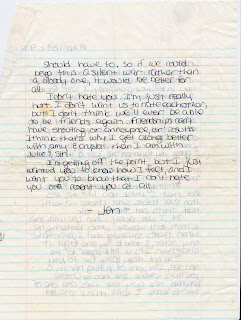 should have to, so if we could
keep this a silent war rather than
a bloody one, it would be better for
all.
I don't hate you. I'm just really
hurt. I don't want us to hate each other,
but I don't think we'll ever be able
to be friends again. Friendship can't
have shouting or annoyance or insults. I
think that's why I get along better
with any than I am with
Julie? Isn't
I'm getting off the point, but I just
wanted you to know how I feel, and I
want you to know that I don't hate
you or resent you at all.
- Jen